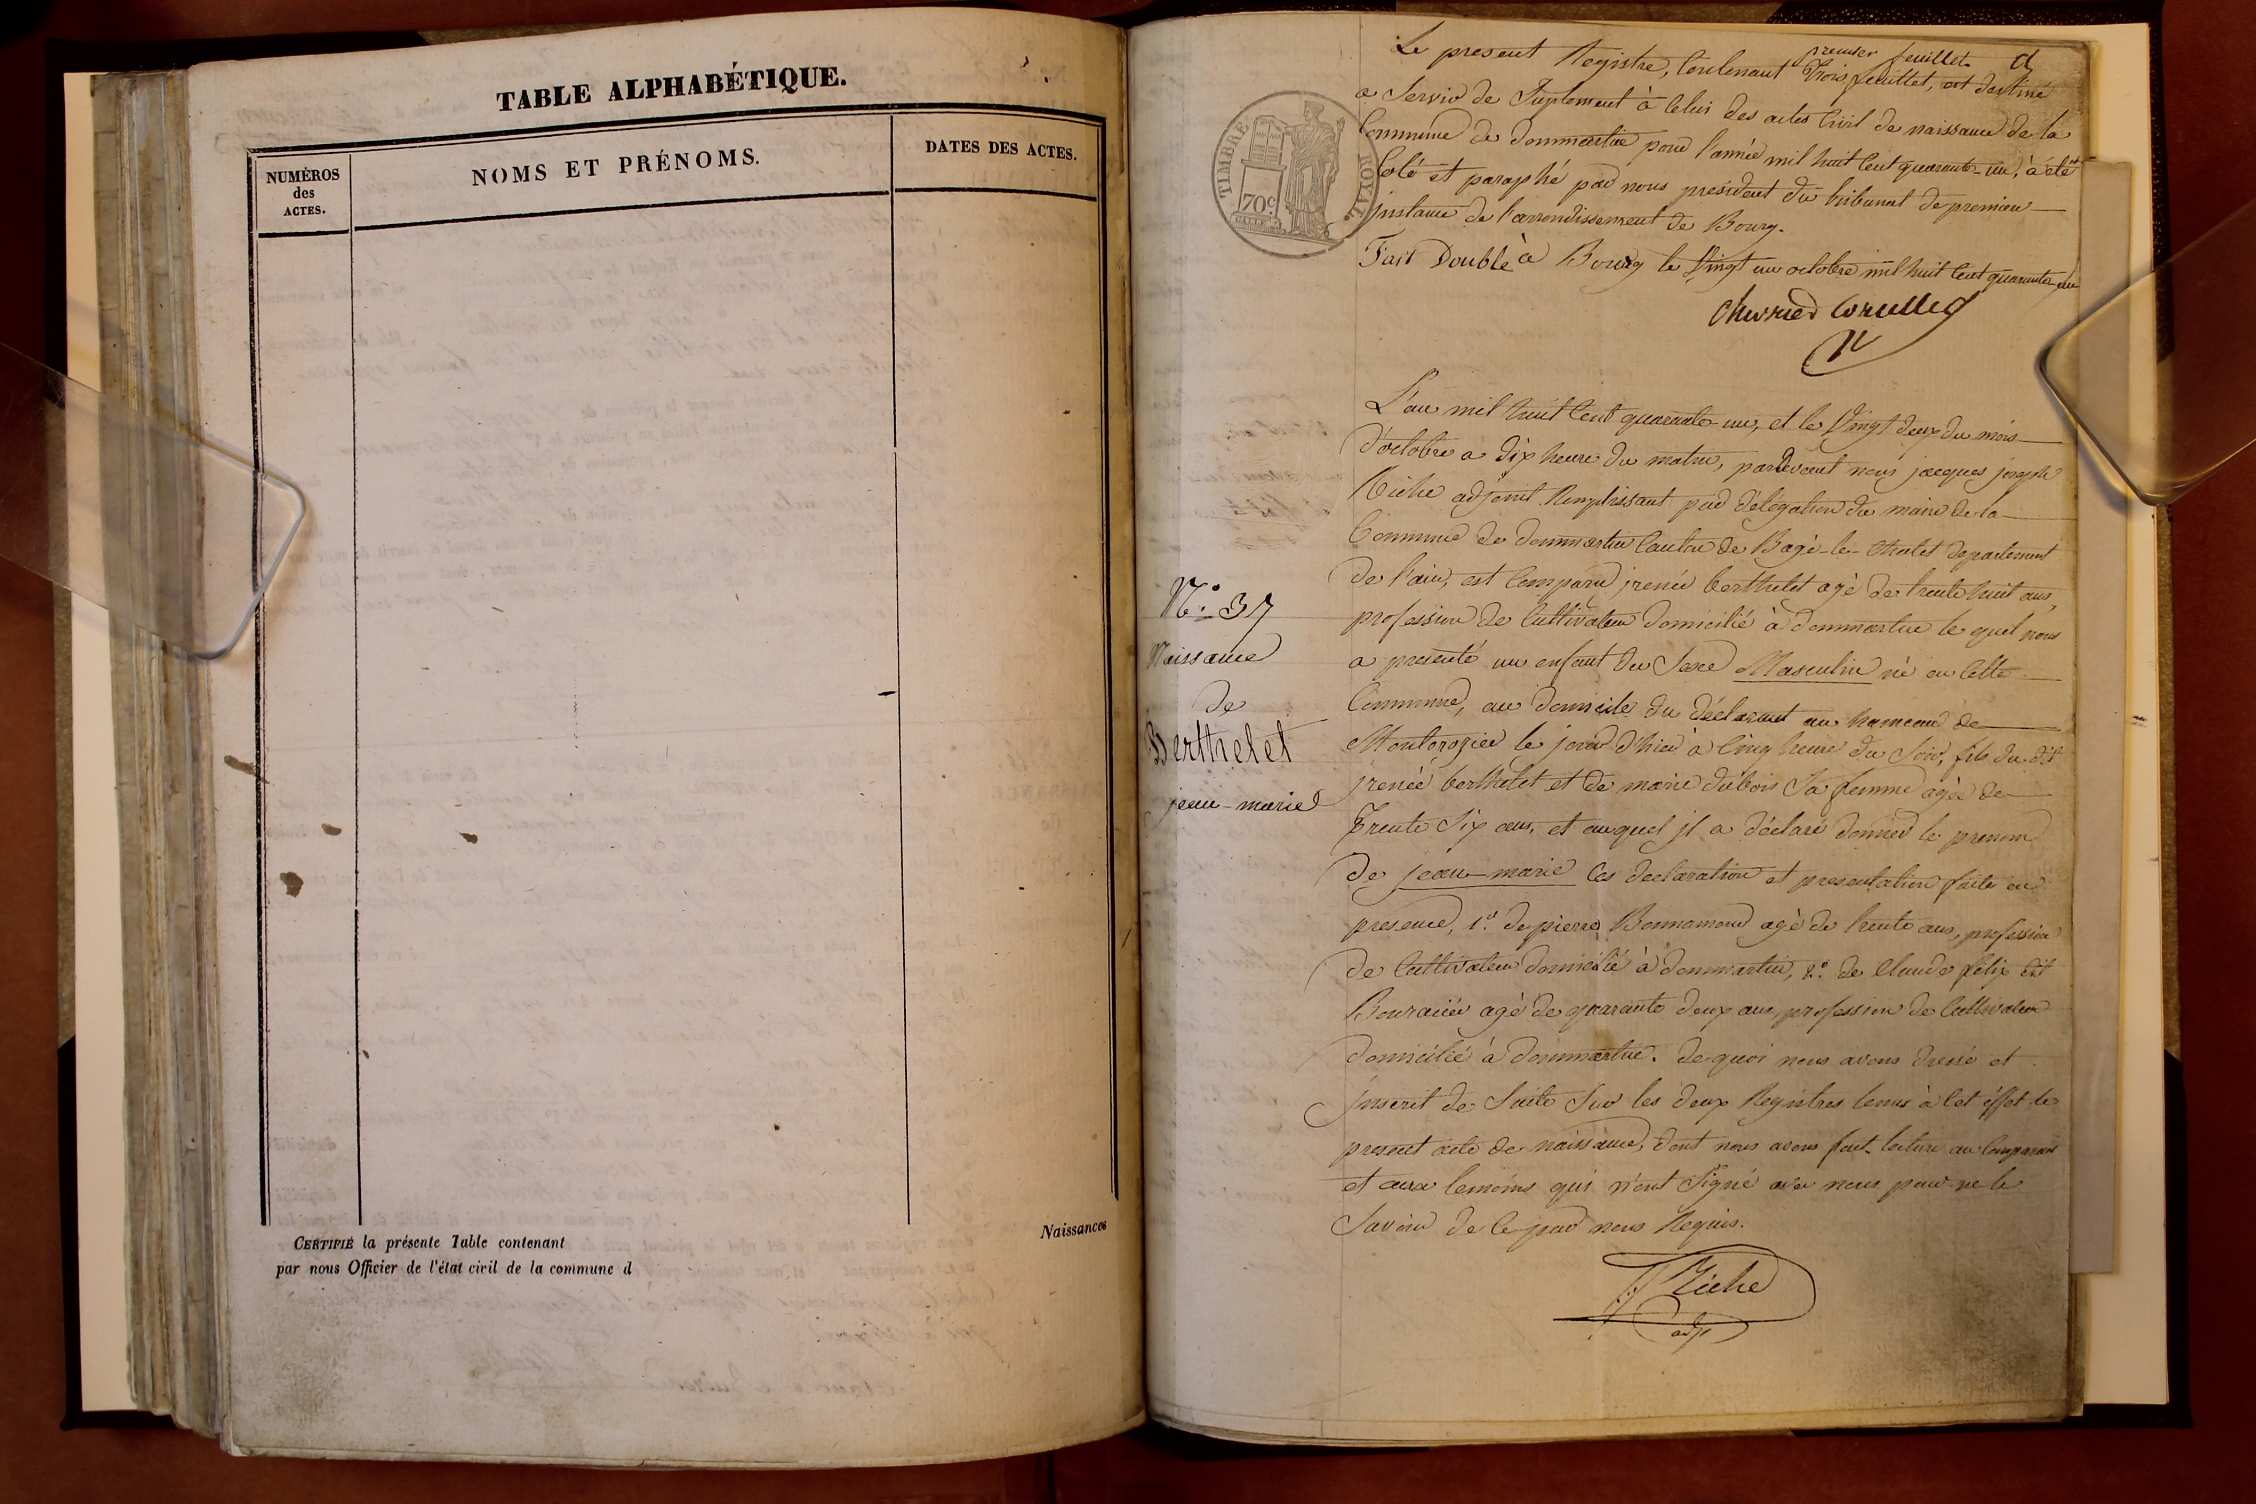 TABLE ALPHABÉTIQUE.
NUMÉROS
des
ACTES.
NOMS ET PRÉNOMS.
DATES DES ACTES.
CERTIFIÉ la présente Table contenant
par nous Officier de l'état civil de la commune d
Naissances
premier feuillet
Le present Registre, Contenant Trois feuillet, est destiné
a Servir de Suplement à Celui des actes Civil de naissance de la
Commune de dommartin pour l'année mil huit Cent quarante-un, à été
Coté et paraphé par nous president du tribunal de premiere
instance de l'arrondissement de Bourg.
Fait Double à Bourg le Vingt un octobre mil huit Cent quarante un
TIMBRE ROYAL
70c
L'an mil huit Cent quarante-un, et le Vingt deux du mois
d'octobre a dix heure du matin, pardevant nous jacques joseph
Riche adjoint Remplissant par délégation du maire de la
Commune de dommartin Canton de Bagé-le-Chatel departement
de l'ain, est Comparu jrenée berthelet agé de trente huit ans,
profession de Cultivateur domicilié à dommartin le quel nous
a presenté un enfant du Sexe Masculin né en Cette
Commune, au domicile du déclarant au hameau de
le jour d'hier à Cinq heure du Soir, fils du dit
jrenée berthelet et de marie dubois Sa femme agée de
Trente Six ans, et auquel jl a déclaré donner le prenom
de jean-marie Ces declaration et presentation faite en
presence, 1.º de pierre Bonnamour agé de trente ans, profession
de Cultivateur domicilié à dommartin, 2.º de Claude félix dit
agé de quarante deux ans profession de Cultivateur
domicilié à dommartin. de quoi nous avons dressé et
jnscrit de Suite Sur les deux Registres tenus à Cet éffet le
present acte de naissance, dont nous avons fait lecture au Comparant
et aux temoins qui n'ont Signé avec nous pour ne le
Savoir de Ce par nous Requis.
Riche
adjt
N.º 37
Naissance
de
Berthelet
jean-marie